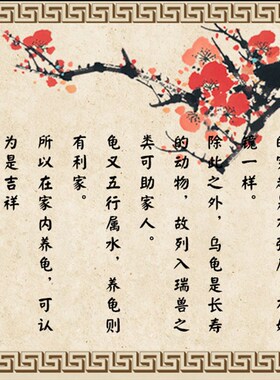 镜一样。
除此之外，乌龟是长寿
的动物，故列入瑞兽之
类可助家人。
龟又五行属水，养龟则
有利家。
所以在家内养龟，可认
为是吉祥